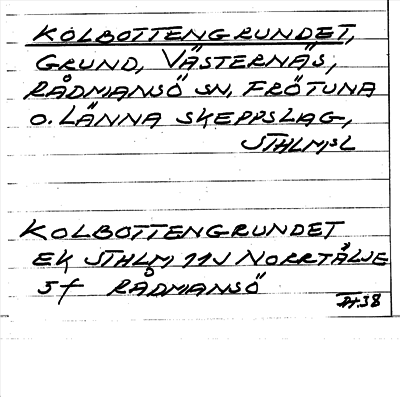 KOLBOTTENGRUNDET,
GRUND, VÄSTERNÄS,
RÅDMANSÖ SN, FRÖTUNA
O. LÄNNA SKEPPSLAG,
STHLMSL
KOLBOTTENGRUNDET
EK STHLM 11J NORRTÄLJE
5f RÅDMANSÖ
38